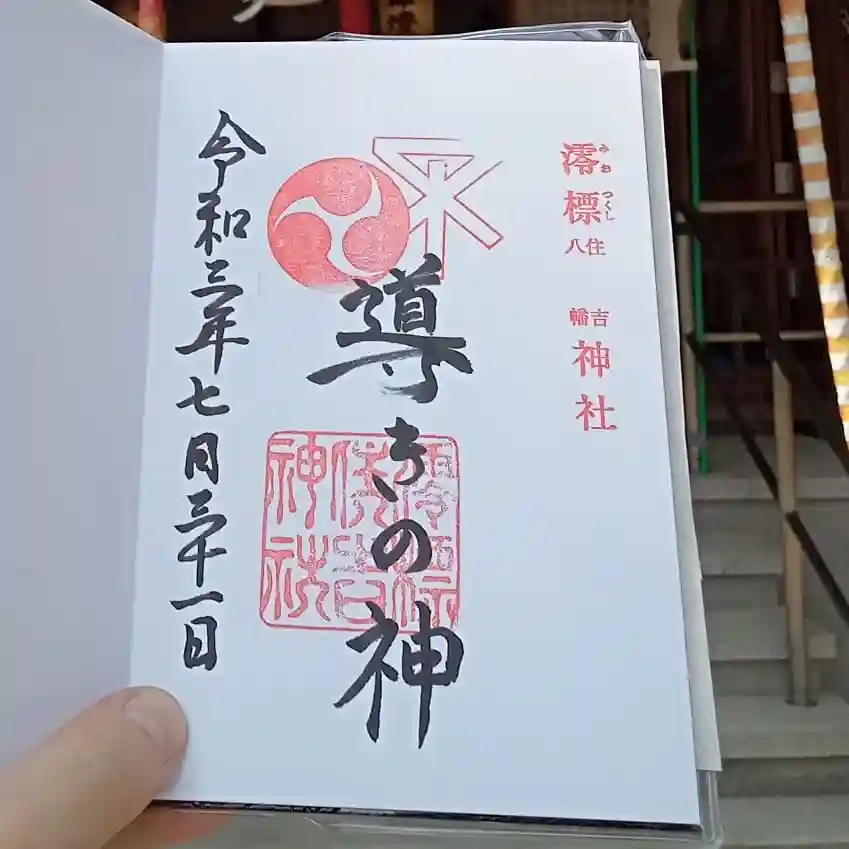 澪標 住吉 八幡 神社
みおつくし
導きの神
澪標
住吉
神社
令和三年七月三十一日